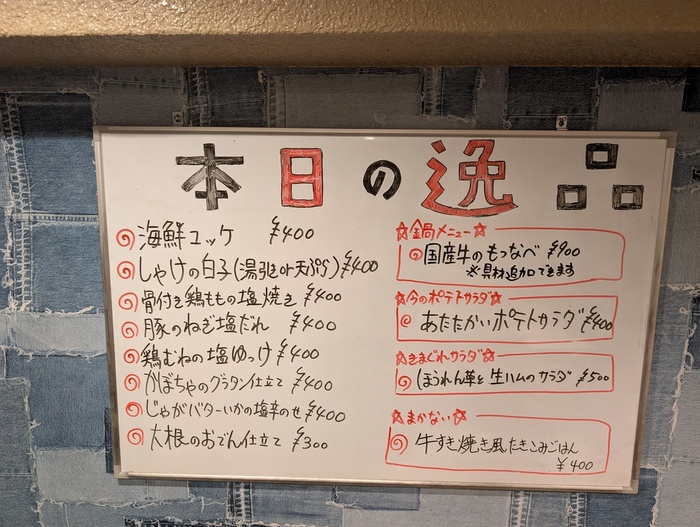 本日の逸品
海鮮ユッケ ¥400
しゃけの白子(湯引きor天ぷら) ¥400
骨付き鶏ももの塩焼き ¥400
豚のねぎ塩だれ ¥400
鶏むねの塩ゆっけ ¥400
かぼちゃのグラタン仕立て ¥400
じゃがバターいかの塩辛のせ ¥400
大根のおでん仕立て ¥300
☆金鍋メニュー☆
国産牛のもつなべ ¥900
※具材追加できます
☆今のポテトサラダ☆
あたたかいポテトサラダ ¥400
☆きまぐれサラダ☆
ほうれん草と生ハムのサラダ ¥500
☆まかない☆
牛すき焼き風たきこみごはん
¥400